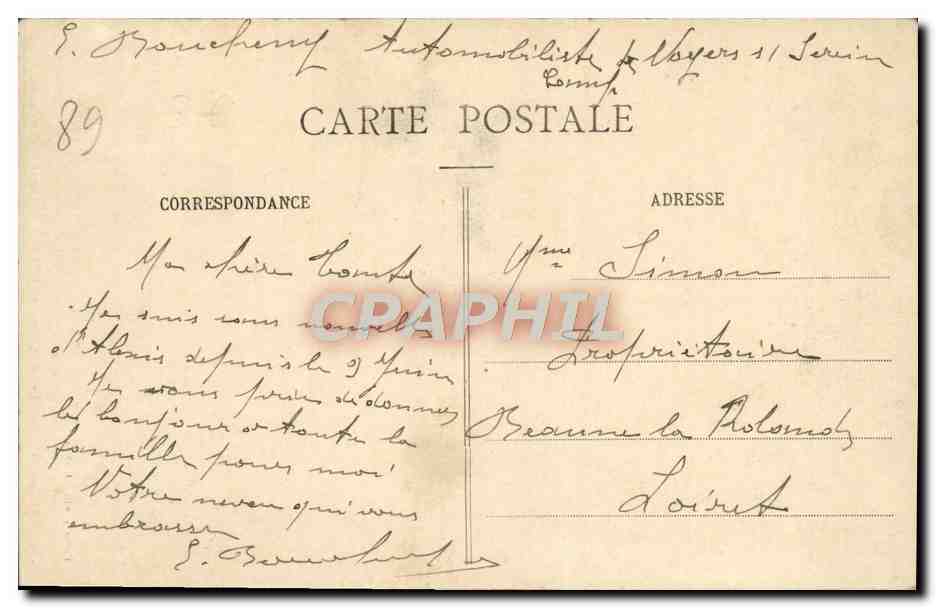 E. Boucheny Automobiliste à Noyers s/ Serein
89
CARTE POSTALE
CORRESPONDANCE
ADRESSE
Ma chère Tante
Je suis sans nouvelles
d'Alexis depuis le 9 Juin
Je vous prie de donner
le bonjour a toute la
famille pour moi
Votre neveu qui vous
embrasse
E. Boucheny
Mme Simon
Propriétaire
Beaune la Rolande
Loiret
CPAPHIL